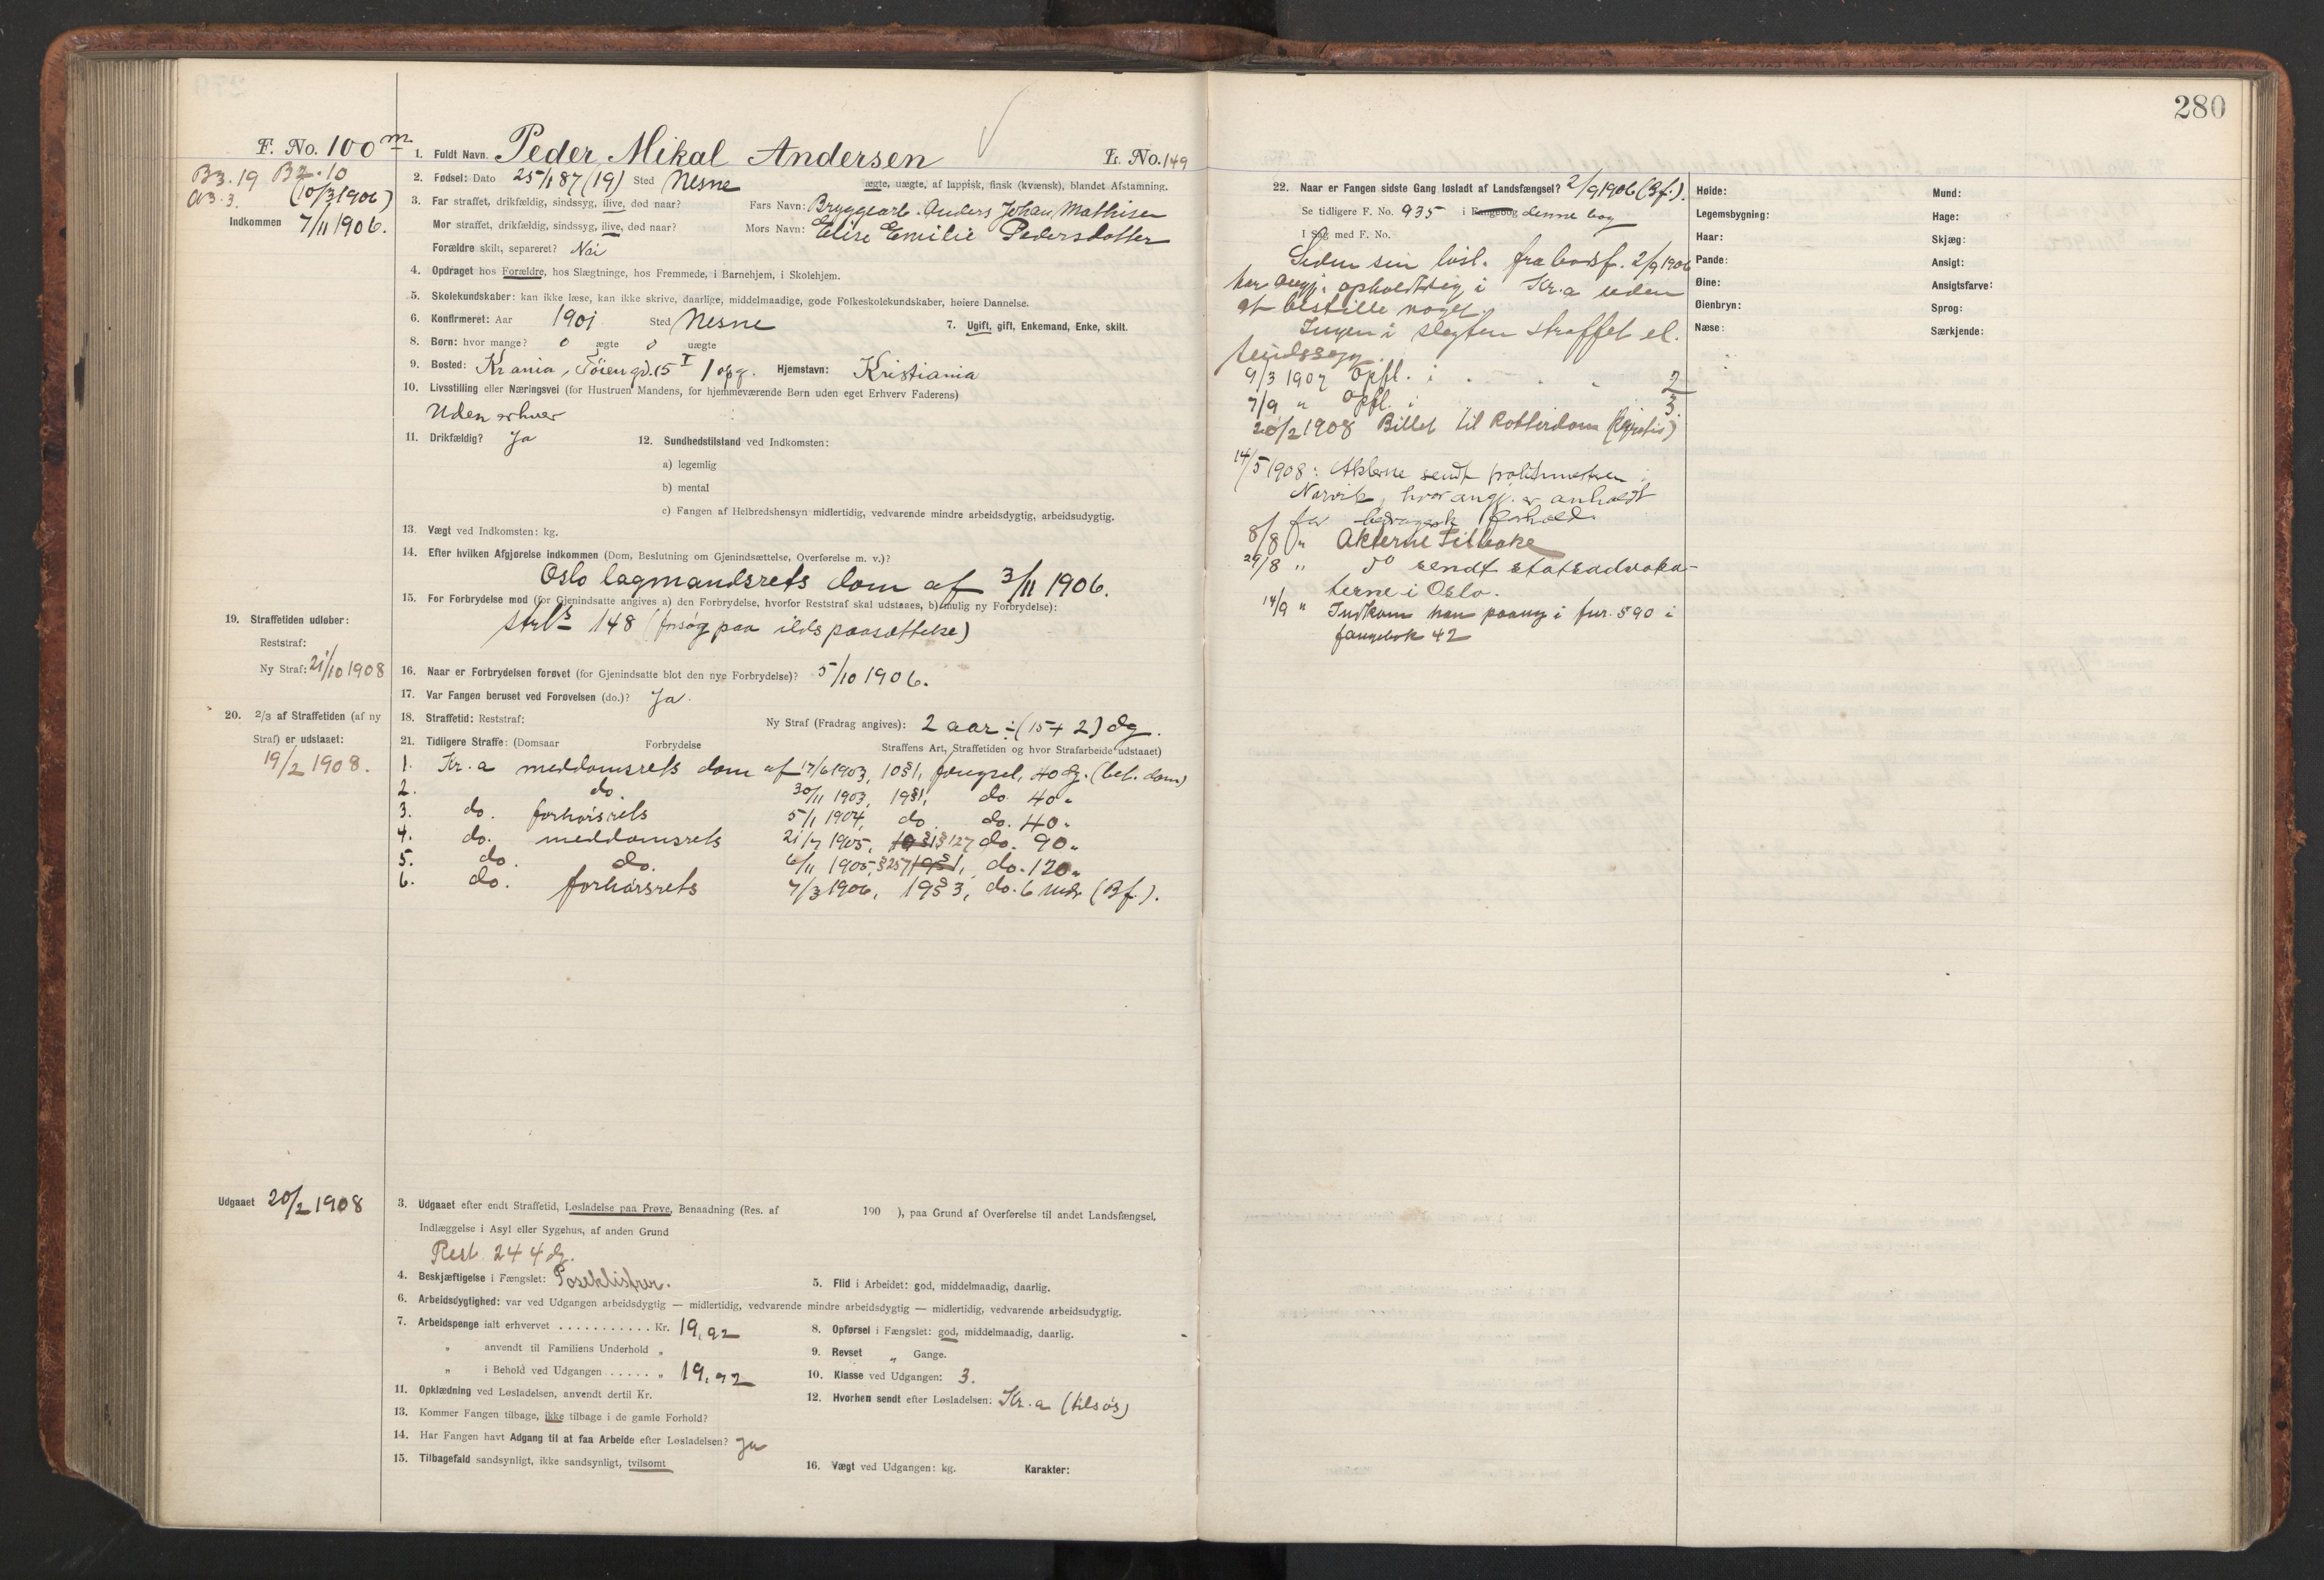 280
F. No. 100 m
B3.19 B2.10
(10/3 1906)
Indkommen 7/11 1906.
1. Fuldt Navn. Peder Mikal Andersen
L. No. 149
2. Fødsel: Dato 25/1 87 (19) Sted Nesne
ægte, uægte, af lappisk, finsk (kvænsk), blandet Afstamning.
3. Far straffet, drikfældig, sindssyg, ilive, død naar? Fars Navn: Bryggearb. Anders Johan Mathisen
Mor straffet, drikfældig, sindssyg, ilive, død naar? Mors Navn: Elise Emilie Pedersdatter
Forældre skilt, separeret? Nei
4. Opdraget hos Forældre, hos Slægtninge, hos Fremmede, i Barnehjem, i Skolehjem.
5. Skolekundskaber: kan ikke læse, kan ikke skrive, daarlige, middelmaadige, gode Folkeskolekundskaber, høiere Dannelse.
6. Konfirmeret: Aar 1901 Sted Nesne 7. Ugift, gift, Enkemand, Enke, skilt.
8. Børn: hvor mange? 0 ægte 0 uægte
9. Bosted: Krania, Töiengd. 15 I 1 opg. Hjemstavn: Kristiania
10. Livsstilling eller Næringsvei (for Hustruen Mandens, for hjemmeværende Børn uden eget Erhverv Faderens)
Uden erhver
11. Drikfældig? Ja 12. Sundhedstilstand ved Indkomsten:
a) legemlig
b) mental
c) Fangen af Helbredshensyn midlertidig, vedvarende mindre arbeidsdygtig, arbeidsudygtig.
13. Vægt ved Indkomsten: kg.
14. Efter hvilken Afgjørelse indkommen (Dom, Beslutning om Gjenindsættelse, Overførelse m. v.)?
Oslo lagmandsrets dom af 3/11 1906.
15. For Forbrydelse mod (for Gjenindsatte angives a) den Forbrydelse, hvorfor Reststraf skal udstaaes, b) mulig ny Forbrydelse):
strls 148 (forsøg paa ildspaasættelse)
19. Straffetiden udløber:
Reststraf:
Ny Straf: 21/10 1908
16. Naar er Forbrydelsen forøvet (for Gjenindsatte blot den nye Forbrydelse)? 5/10 1906.
17. Var Fangen beruset ved Forøvelsen (do.)? Ja.
20. 2/3 af Straffetiden (af ny
Straf) er udstaaet:
19/2 1908.
18. Straffetid: Reststraf: Ny Straf (Fradrag angives): 2 aar ÷ (15 + 2) dg.
21. Tidligere Straffe: (Domsaar Forbrydelse Straffens Art, Straffetiden og hvor Strafarbeide udstaaet)
1. Kr.a meddomsrets dom af 17/6 1903, 10 § 1, fængsel, 40 dg. (bet. dom)
2. do. 30/11 1903, 19 § 1, do. 40 "
3. do. forhørsrets 5/1 1904, do. do. 40 "
4. do. meddomsrets 21/7 1905, 10 § 1 § 127 do. 90 "
5. do. do. 6/11 1905, § 257 19 § 1, do. 120 "
6. do. forhørsrets 7/3 1906, 19 § 3, do. 6 mdr (Bf.).
Udgaaet 20/2 1908
3. Udgaaet efter endt Straffetid, Løsladelse paa Prøve, Benaadning (Res. af 190 ), paa Grund af Overførelse til andet Landsfængsel,
Indlæggelse i Asyl eller Sygehus, af anden Grund
Rest 244 dg.
4. Beskjæftigelse i Fængslet: Poseklistrer. 5. Flid i Arbeidet: god, middelmaadig, daarlig.
6. Arbeidsdygtighed: var ved Udgangen arbeidsdygtig — midlertidig, vedvarende mindre arbeidsdygtig — midlertidig, vedvarende arbeidsudygtig.
7. Arbeidspenge ialt erhvervet ........... Kr. 19,92 8. Opførsel i Fængslet: god, middelmaadig, daarlig.
" anvendt til Familiens Underhold " 9. Revset " Gange.
" i Behold ved Udgangen ..... " 19,92 10. Klasse ved Udgangen: 3.
11. Opklædning ved Løsladelsen, anvendt dertil Kr. 12. Hvorhen sendt efter Løsladelsen: Kr.a (tilsøs)
13. Kommer Fangen tilbage, ikke tilbage i de gamle Forhold?
14. Har Fangen havt Adgang til at faa Arbeide efter Løsladelsen? Ja
15. Tilbagefald sandsynligt, ikke sandsynligt, tvilsomt 16. Vægt ved Udgangen: kg. Karakter:
22. Naar er Fangen sidste Gang løsladt af Landsfængsel? 2/9 1906 (Bf.).
Se tidligere F. No. 935 i Fangebog denne bog
I Sag med F. No.
Siden sin løsl. fra bodsf. 2/9 1906
har angj. opholdt sig i Kr.a uden
at bestille noget.
Ingen i slægten straffet el.
sindssyg.
9/3 1907 Opfl. i . . . 2
7/9 " Opfl. i 3.
20/2 1908 Billet til Rotterdam (gratis)
14/5 1908: Akterne sendt politimesteren i
Narvik, hvor angj. er anholdt
for bedragersk forhold.
8/8 " Akterne tilbake
29/8 " do sendt statsadvoka-
terne i Oslo.
14/9 " Indkom han paany i fnr. 590 i
fangebok 42
Høide:
Legemsbygning:
Haar:
Pande:
Øine:
Øienbryn:
Næse:
Mund:
Hage:
Skjæg:
Ansigt:
Ansigtsfarve:
Sprog:
Særkjende: